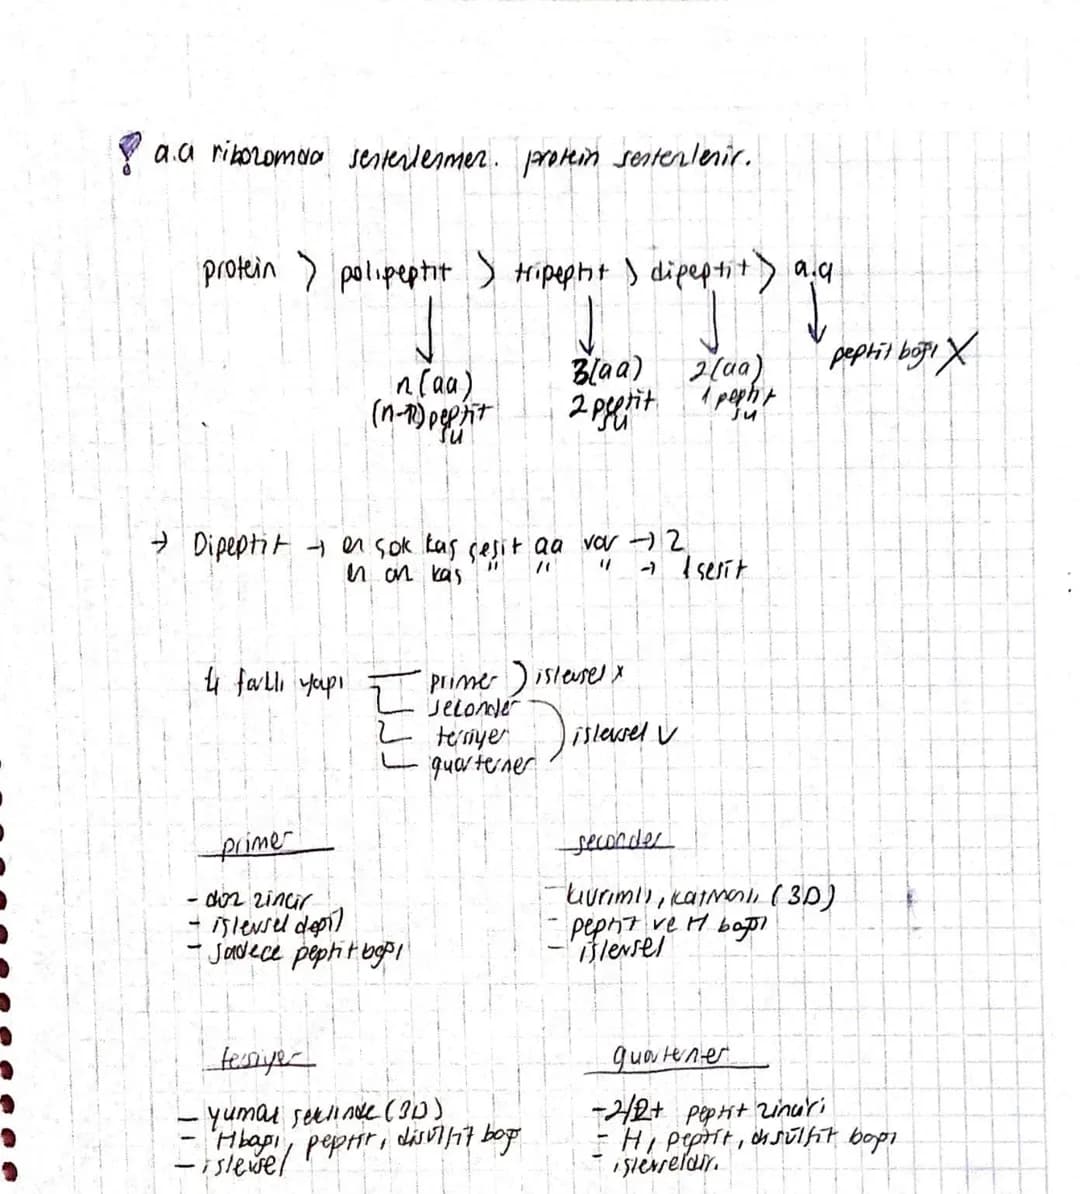 a.a ribozomda sentezlenmez. protein sentezlenir.
protein > polipeptit > tripeptit > dipeptit > a.a
peptit bağı X
n(aa) 3(aa) 2(aa)
(n-1) peptit 2 peptit 1 peptit
su su su
→ Dipeptit → en çok kaç çeşit aa var → 2
en az kaç " " " → 1 çeşit
4 farklı yapı primer ) işlevsel x
seconder
tersiyer ) işlevsel V
quarterner
primer seconder
- düz zincir
- işlevsel değil
- Sadece peptit bağı
- kıvrımlı, katmanlı (3D)
- peptit ve H bağı
- işlevsel
tersiyer quarterner
- yumak şeklinde (3D)
- H bağı, peptit, disülfit bağ
- işlevsel
- 2/2+ peptit zinciri
- H, peptit, disülfit bağı
- işlevseldir.